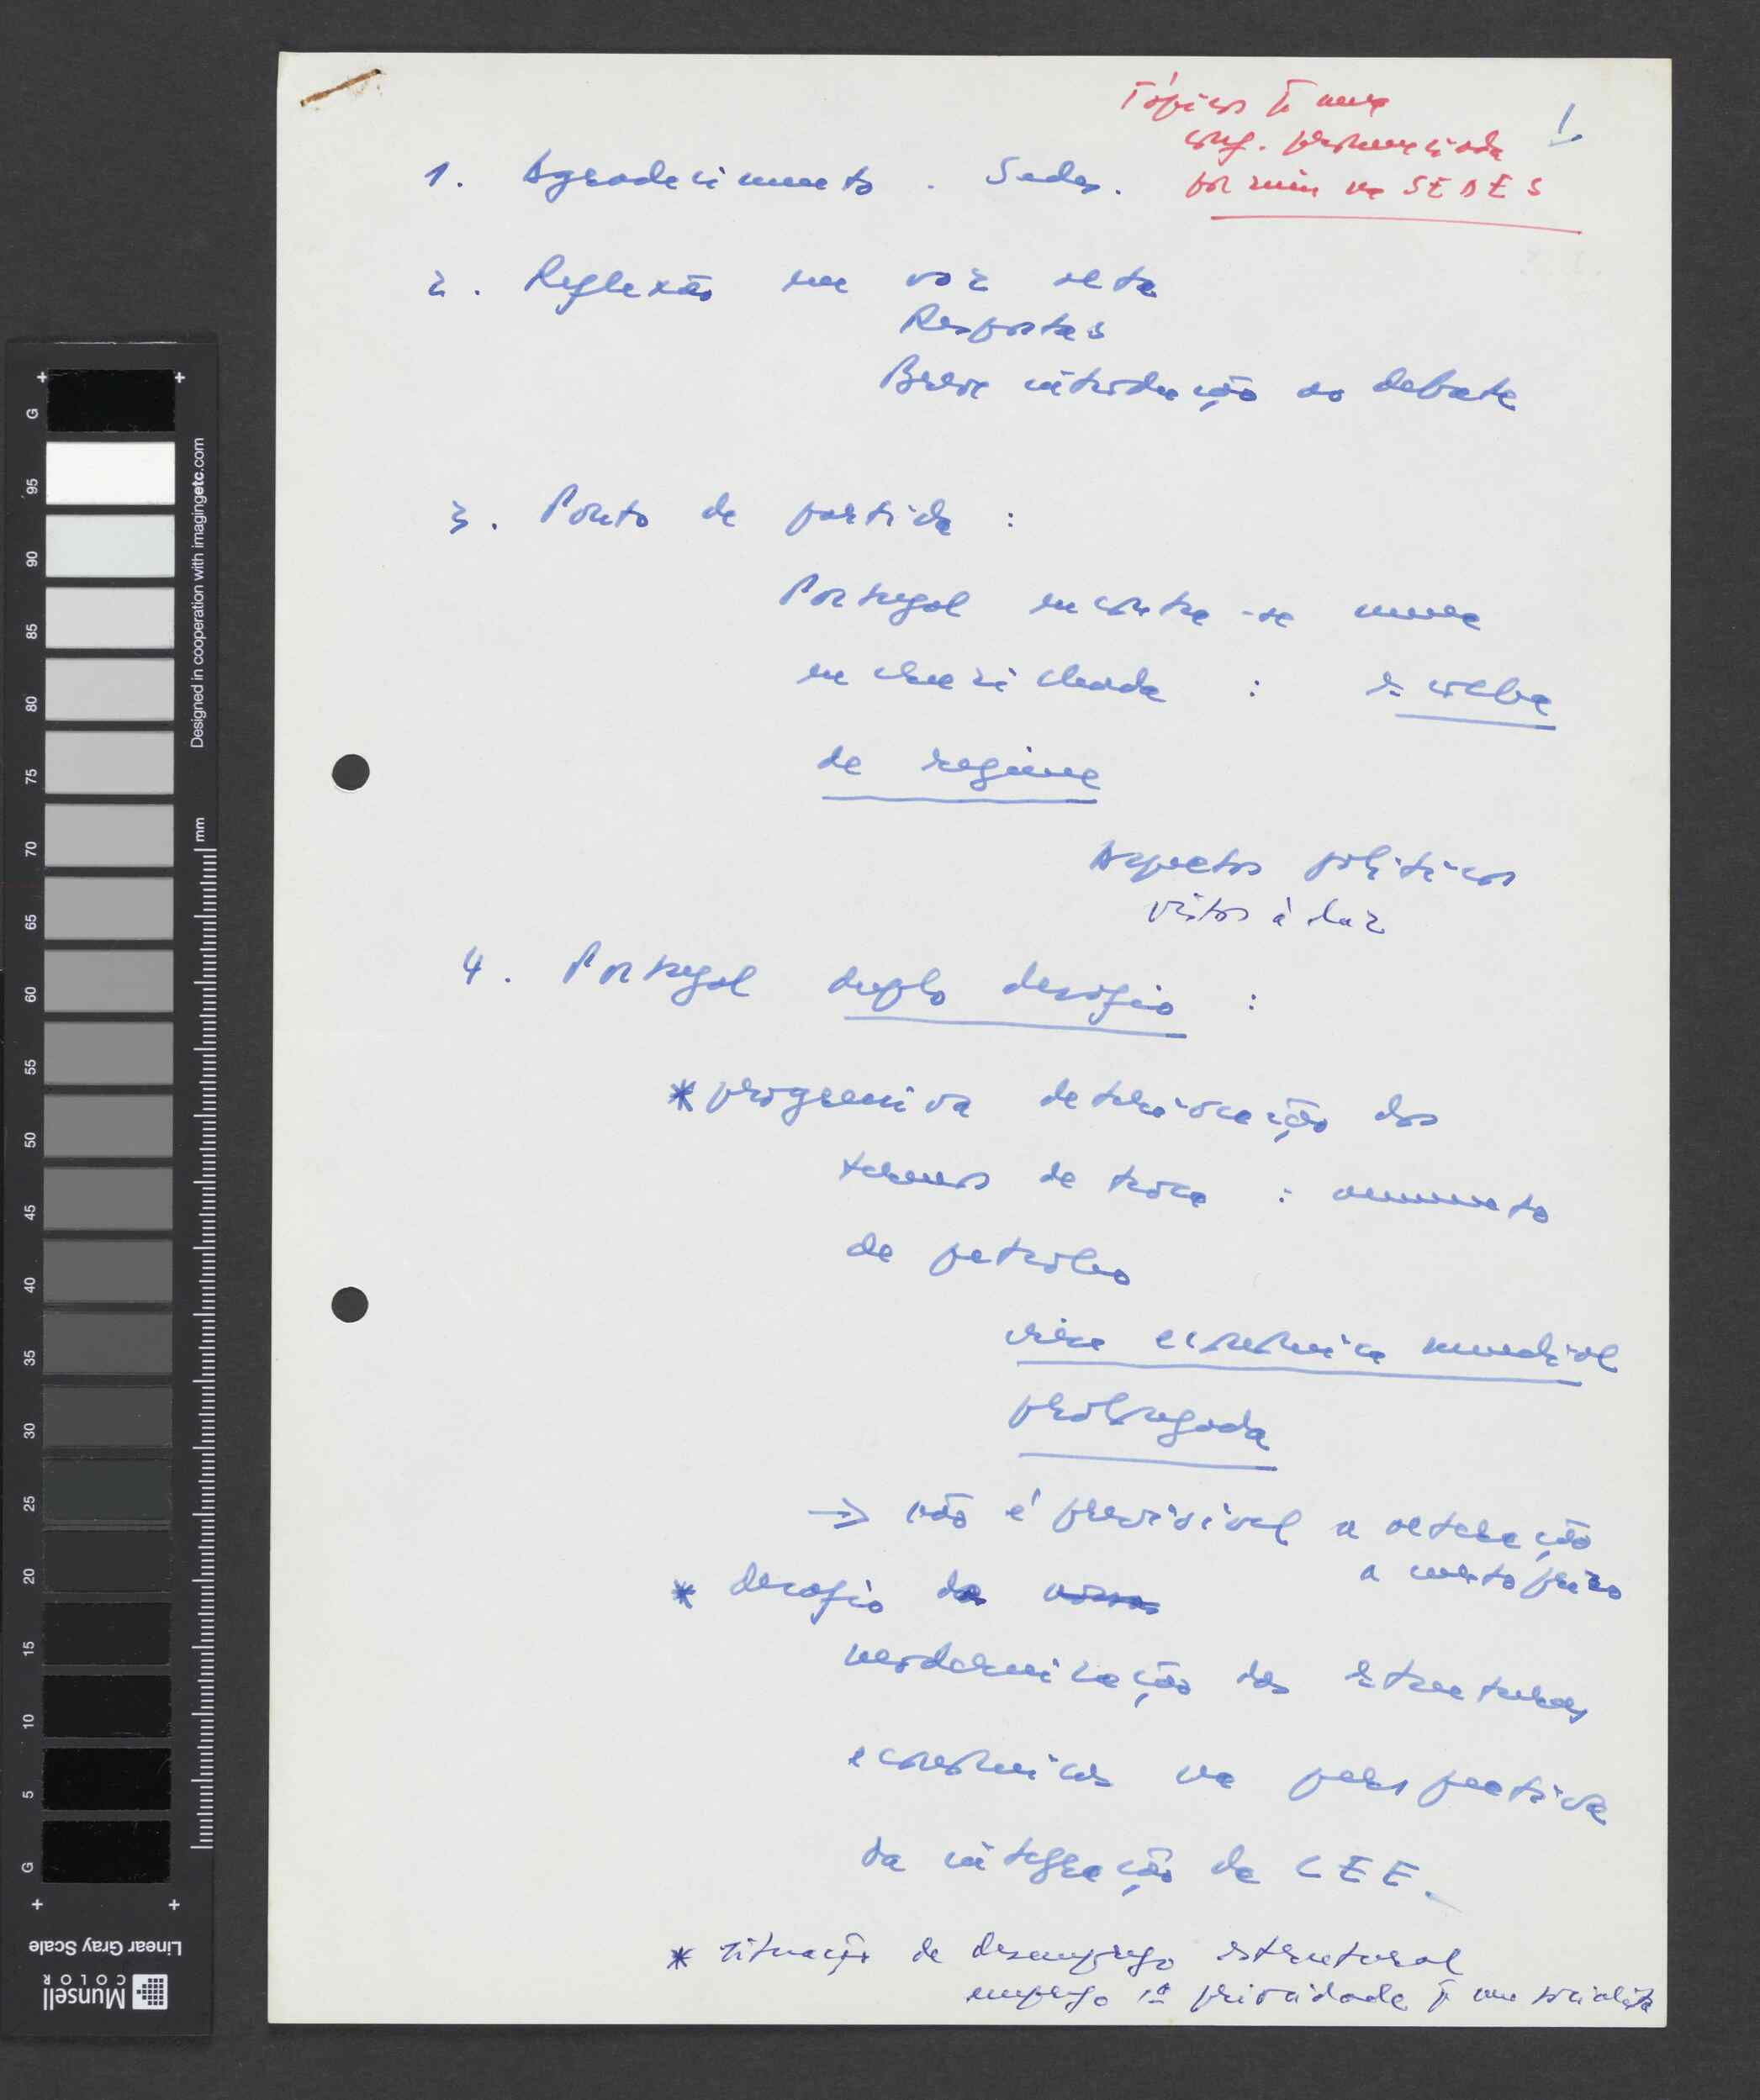 Tópicos p. uma
conf. pronunciada
por mim na SEDES
1
1. Agradecimento. Sedes.
2. Reflexão em voz alta
Respostas
Breve introdução ao debate
3. Ponto de partida :
Portugal encontra-se numa
encruzilhada : escolha
de regime
Aspectos políticos
vistos à luz
4. Portugal duplo desafio :
* progressiva deterioração dos
termos de troca : aumento
de petróleo
crise económica mundial
prolongada
→ não é previsível a alteração
a curto prazo
* desafio da
modernização das estruturas
económicas na perspectiva
da integração da CEE.
* situação de desemprego estrutural
emprego 1ª prioridade p. um socialista
G
95
90
85
80
75
70
65
60
55
50
45
40
35
30
25
20
15
10
5
G
Designed in cooperation with imagingetc.com
mm
Linear Gray Scale
Munsell
COLOR